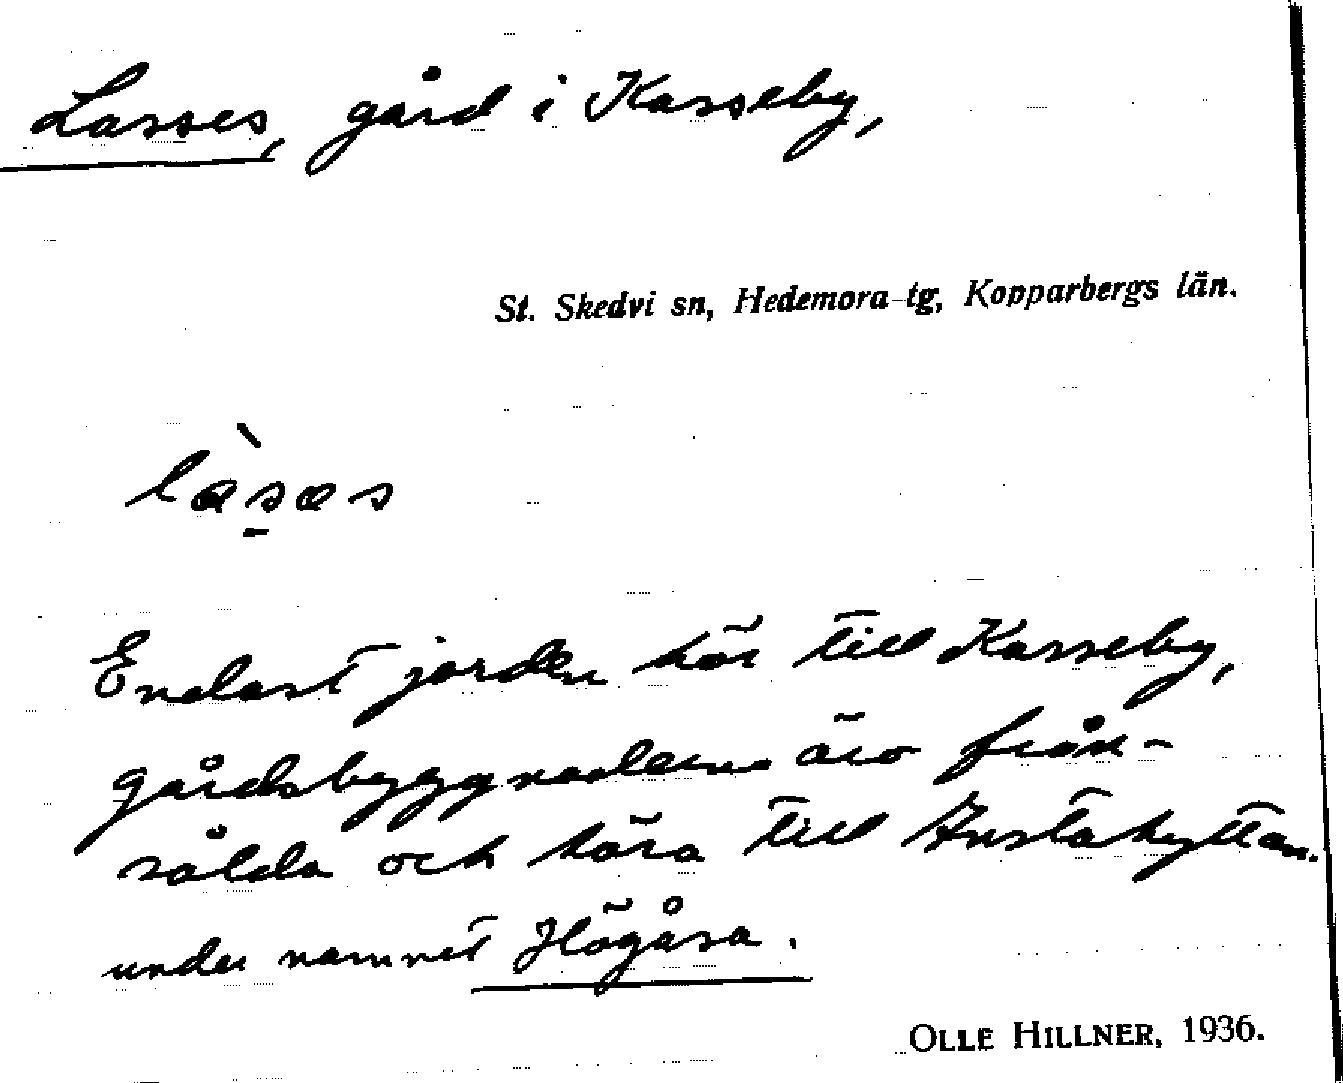 Lasses, gård i Kasseby,
St. Skedvi sn, Hedemora tg, Kopparbergs län.
làs̱as
Endast jorden hör till Kasseby,
gårdsbyggnaderna äro från-
sålda och höra till Gustahyttan.
under namnet Högåsa.
OLLE HILLNER, 1936.